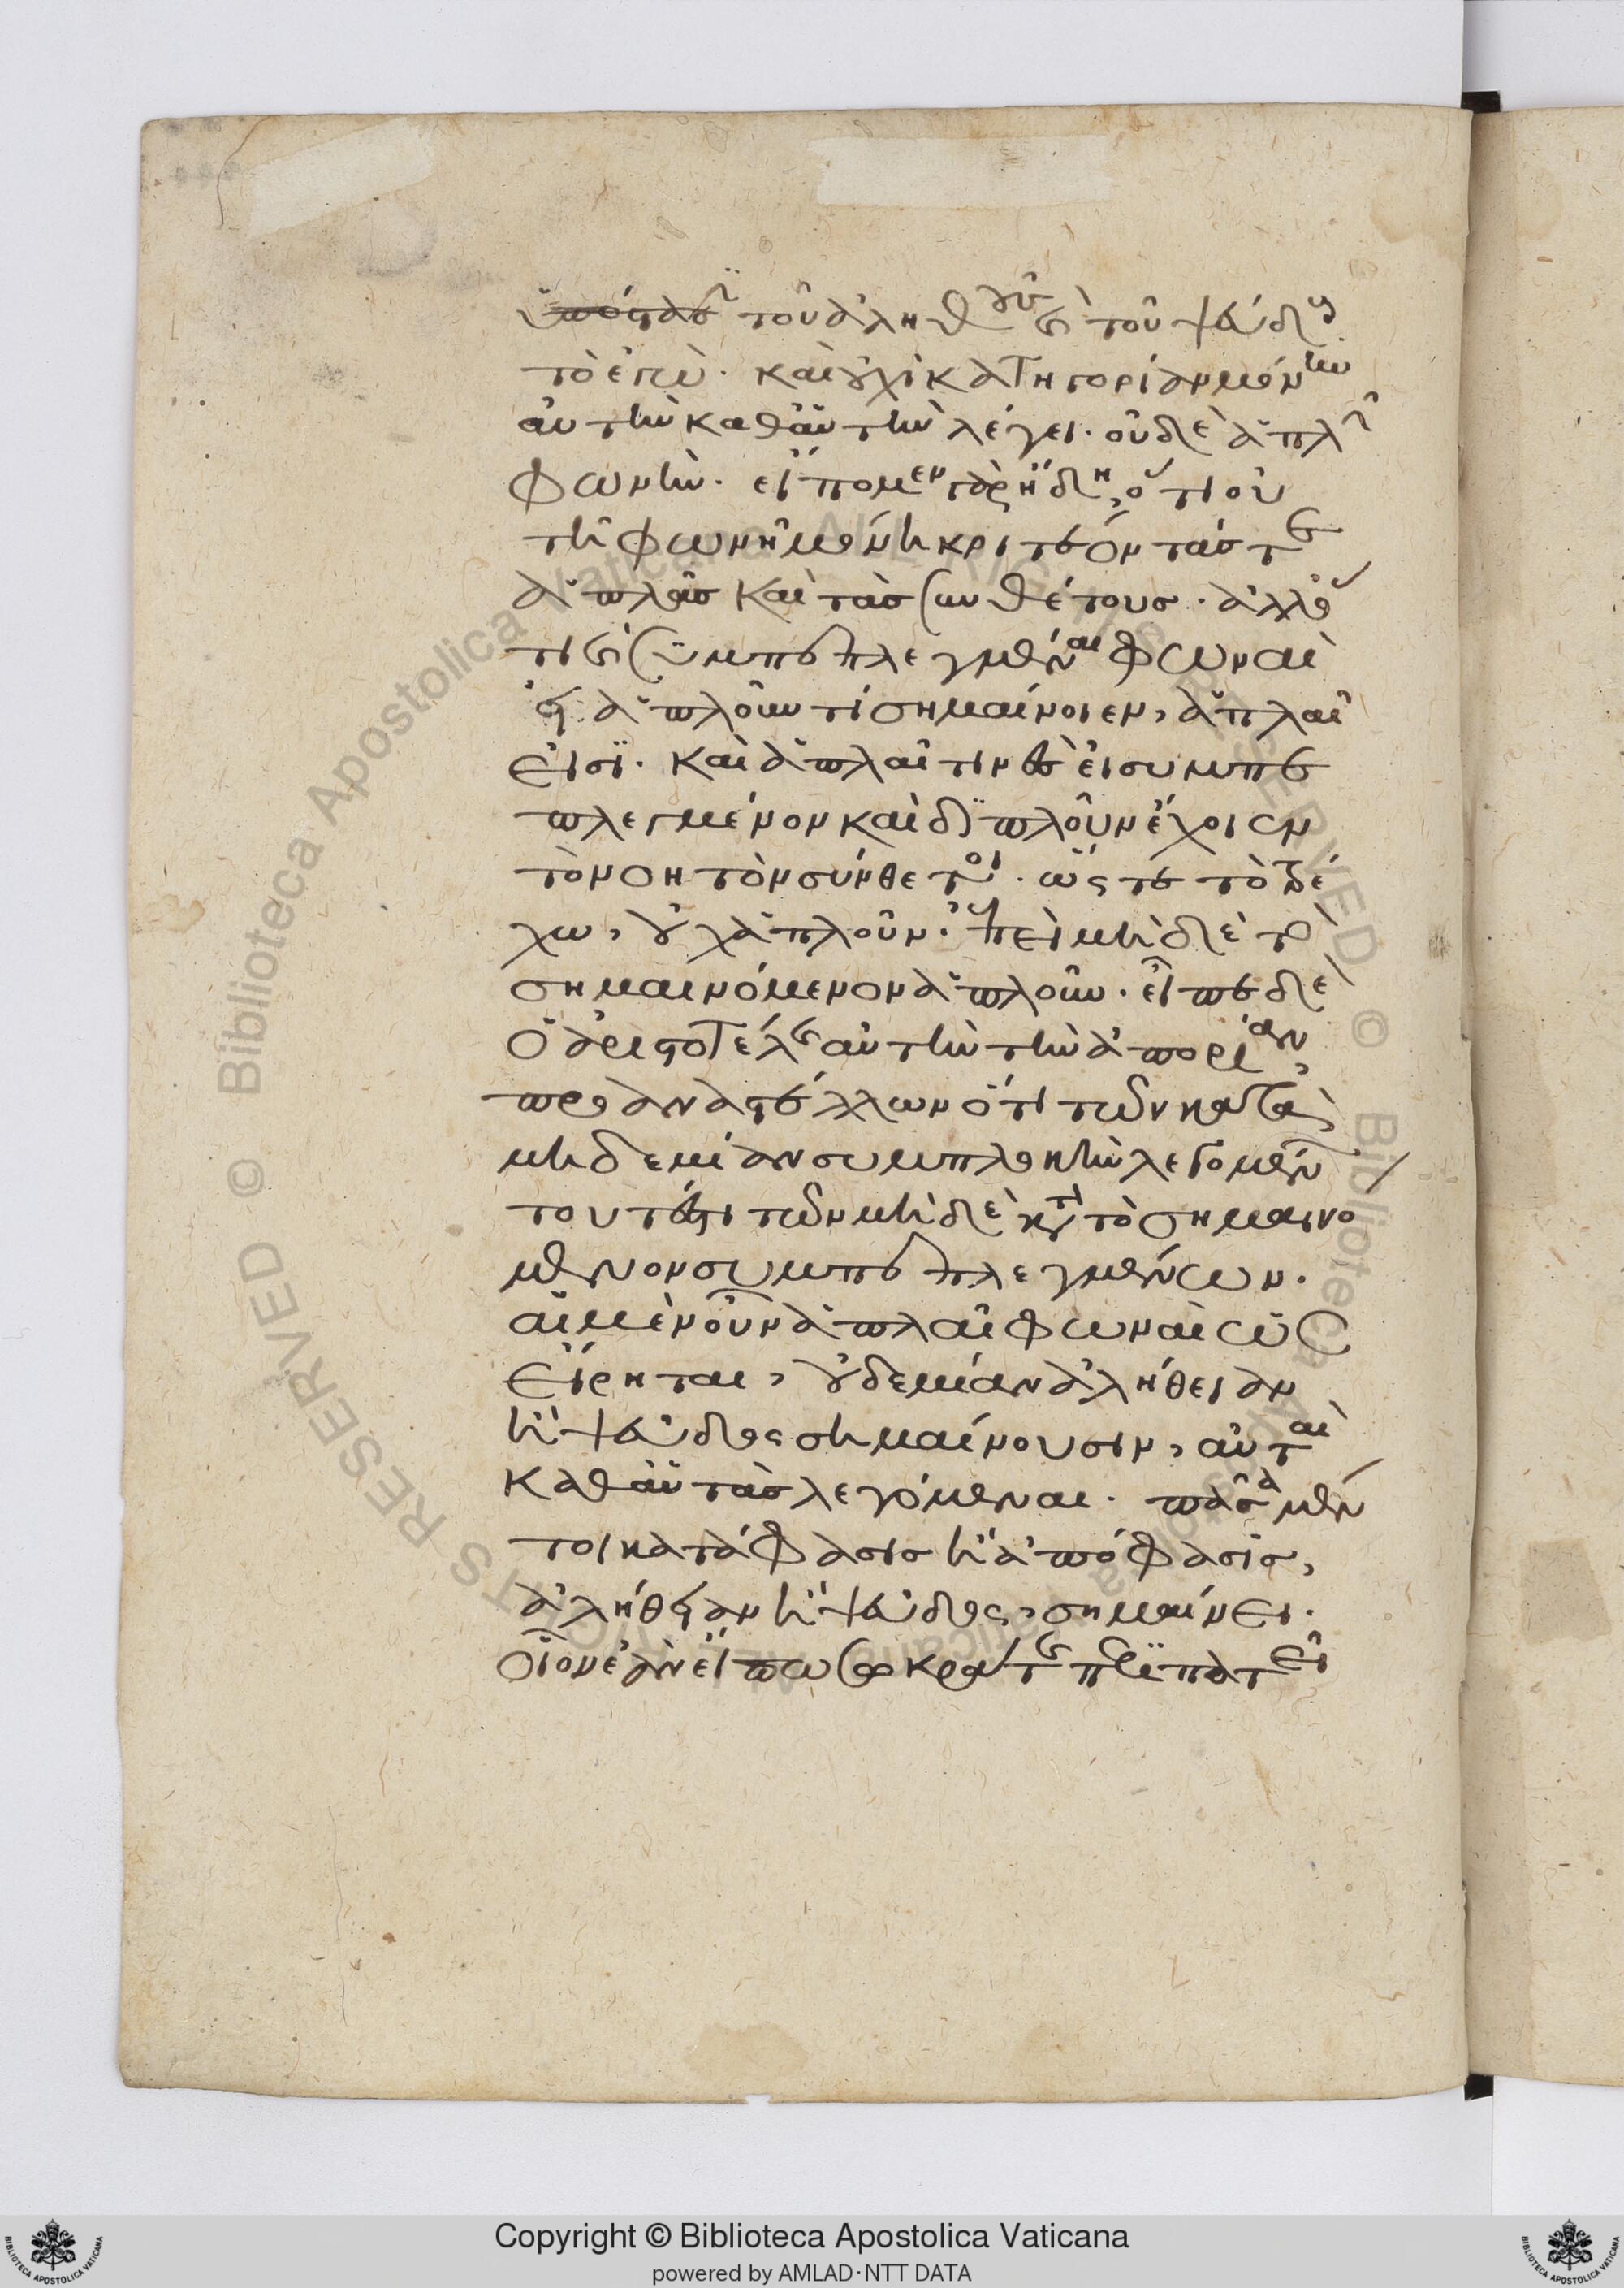 ὑπόστασϊ τοῦ ἀληθοῦς ἢ τοῦ ψεύδους
τὸ ἐπὶ. καὶ οὐχὶ κατηγορίαν μόνην
αὐτὴν καθ αὑτὴν λέγει. οὐδὲ ἁπλῆν
φωνήν. εἴπομεν γὰρ ἤδη, ὅτι οὐ
τῇ φωνῇ μόνῃ κριτέον τάς τε
ἁπλᾶς καὶ τὰς συνθέτους. ἀλλ
συμπεπλεγμέναι φωναὶ
ἁπλοῦν τί σημαίνοιεν, ἁπλαῖ
εἰσϊ. καὶ ἁπλαῖ τινες εἰ συμπε
πλεγμένον καὶ διπλοῦν ἔχοιεν
τὸ νοητὸν σύνθετοι. ὥστε τὸ τρέ
χω, οὐχ ἁπλοῦν. ἐπεὶ μὴ δὲ τὸ
σημαινόμενον ἁπλοῦν. εἶπε δὲ
ὁ ἀριστοτέλης αὐτὴν τὴν ἀπορίαν,
προαναστέλλων ὅτι τῶν κατὰ
μηδεμίαν συμπλοκὴν λεγομένων
τουτέστι τῶν μὴ δὲ κατὰ τὸ σημαινό
μενον συμπεπλεγμένων.
αἱ μὲν οὖν ἁπλαῖ φωναὶ ὡς
εἴρηται, οὐδεμίαν ἀλήθειαν
ἢ ψεῦδος σημαίνουσιν, αὐταὶ
καθ αὑτὰς λεγόμεναι. πᾶσα μέν
τοι κατάφασις ἢ ἀπόφασις,
ἀλήθειαν ἢ ψεῦδος, σημαίνει.
οἷον ἐὰν εἴπω σωκράτης περϊπατεῖ